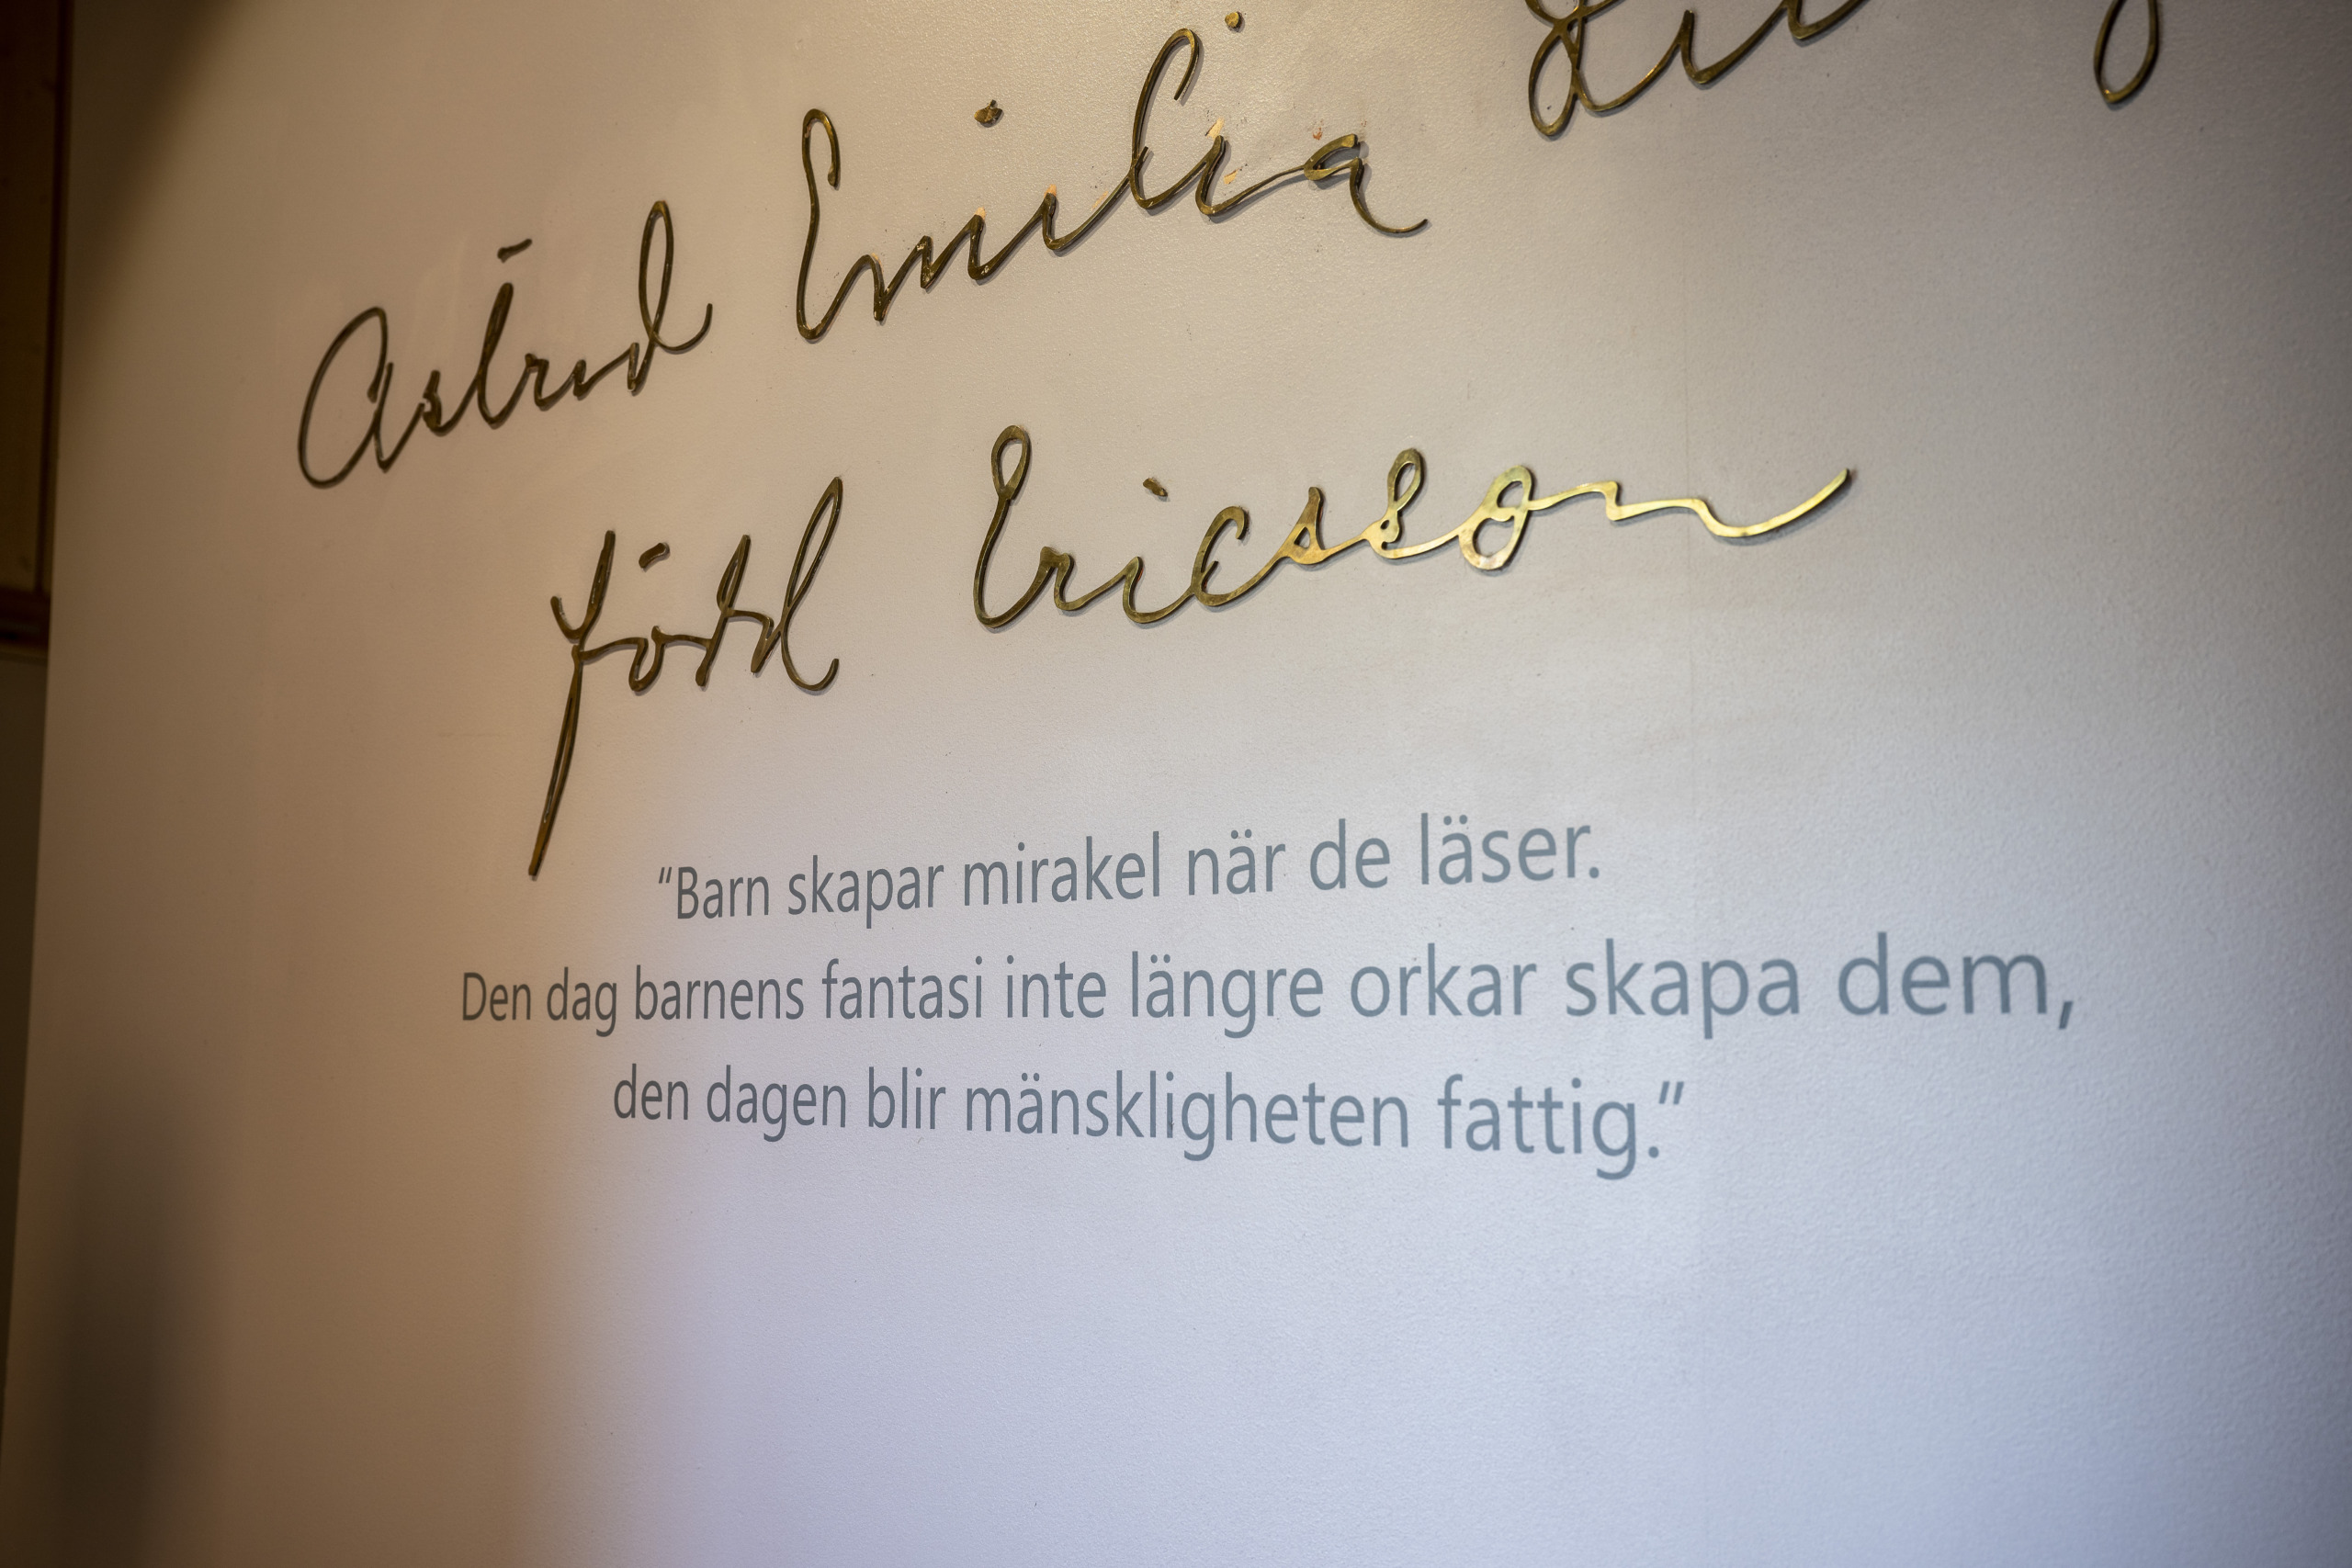 Astrid Emilia
född Ericsson
“Barn skapar mirakel när de läser.
Den dag barnens fantasi inte längre orkar skapa dem,
den dagen blir mänskligheten fattig.”